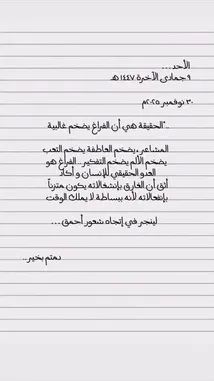 الأحد...
٩ جمادى الآخرة ١٤٤٧ هـ
٣٠ نوفمبر ٢٠٢٥م
.."الحقيقة هي أن الفراغ يضخم غالبية
المشاعر ،يضخم العاطفة يضخم التعب
يضخم الألم يضخم التفكير.. الفراغ هو
العدو الحقيقي للإنسان و أكاد
أثق أن الغارق بإنشغالاته يكون متزناً
بإنفعالاته لأنه ببساطة لا يملك الوقت
لينجر في إتجاه شعور أحمق...
دمتم بخير..